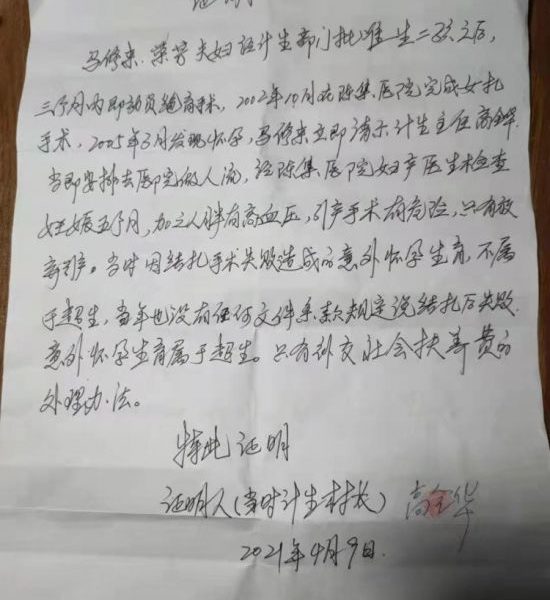 证明
马修来、荣芳夫妇经计生部门批准生二孩之后,
三个月内即动员绝育术,2002年10月在陈集医院完成女扎
手术,2005年3月发现怀孕,马修来立即请示计生主任高全华
当即安排去医院做人流,经陈集医院妇产医生检查
妊娠五个月,加之人胖有高血压,引产手术有危险,只有放
弃引产。当时因结扎手术失败造成的意外怀孕生育,不属
于超生,当年也没有任何文件条款规定说结扎后失败
意外怀孕生育属于超生。只有补交社会扶养费的
处理办法。
特此证明
证明人(当时计生村长) 高全华
2021年4月9日.